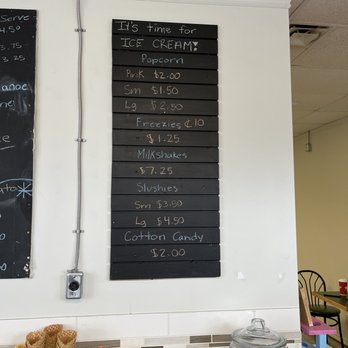 Serve
4.50
3.75
3.25
It's time for
ICE CREAM!
Popcorn
Pnk $2.00
Sm $1.50
Lg $2.50
Freezies ¢10
$1.25
Milkshakes
$7.25
Slushies
Sm $3.50
Lg $4.50
Cotton Candy
$2.00